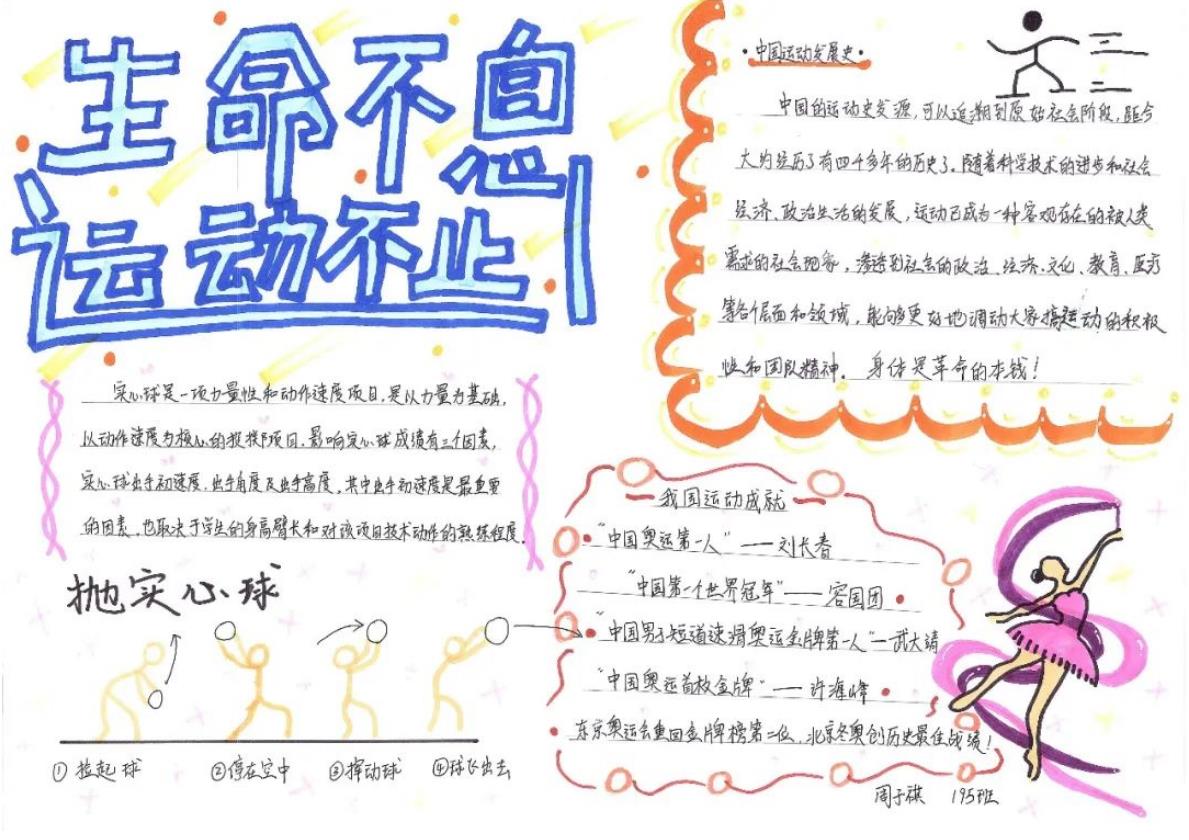 生命不息
运动不止
实心球是一项力量性和动作速度项目,是以力量为基础,
以动作速度为核心的投掷项目,影响实心球成绩有三个因素,
实心球出手初速度,出手角度及出手高度,其中出手初速度是最重要
的因素,也取决于学生的身高臂长和对该项目技术动作的熟练程度.
抛实心球
①捡起球
②停在空中
③挥动球
④球飞出去
·中国运动发展史·
中国的运动史发源,可以追溯到原始社会阶段,距今
大约经历了有四千多年的历史了.随着科学技术的进步和社会
经济、政治生活的发展,运动已成为一种客观存在的被人类
需求的社会现象,渗透到社会的政治、经济、文化、教育、医疗
等各个层面和领域,能够更好地调动大家搞运动的积极
性和团队精神. 身体是革命的本钱!
我国运动成就
"中国奥运第一人"——刘长春
"中国第一个世界冠军"——容国团
"中国男子短道速滑奥运金牌第一人"—武大靖
"中国奥运首枚金牌"——许海峰
东京奥运会重回金牌榜第二位,北京冬奥创历史最佳战绩!
周子祺 195班